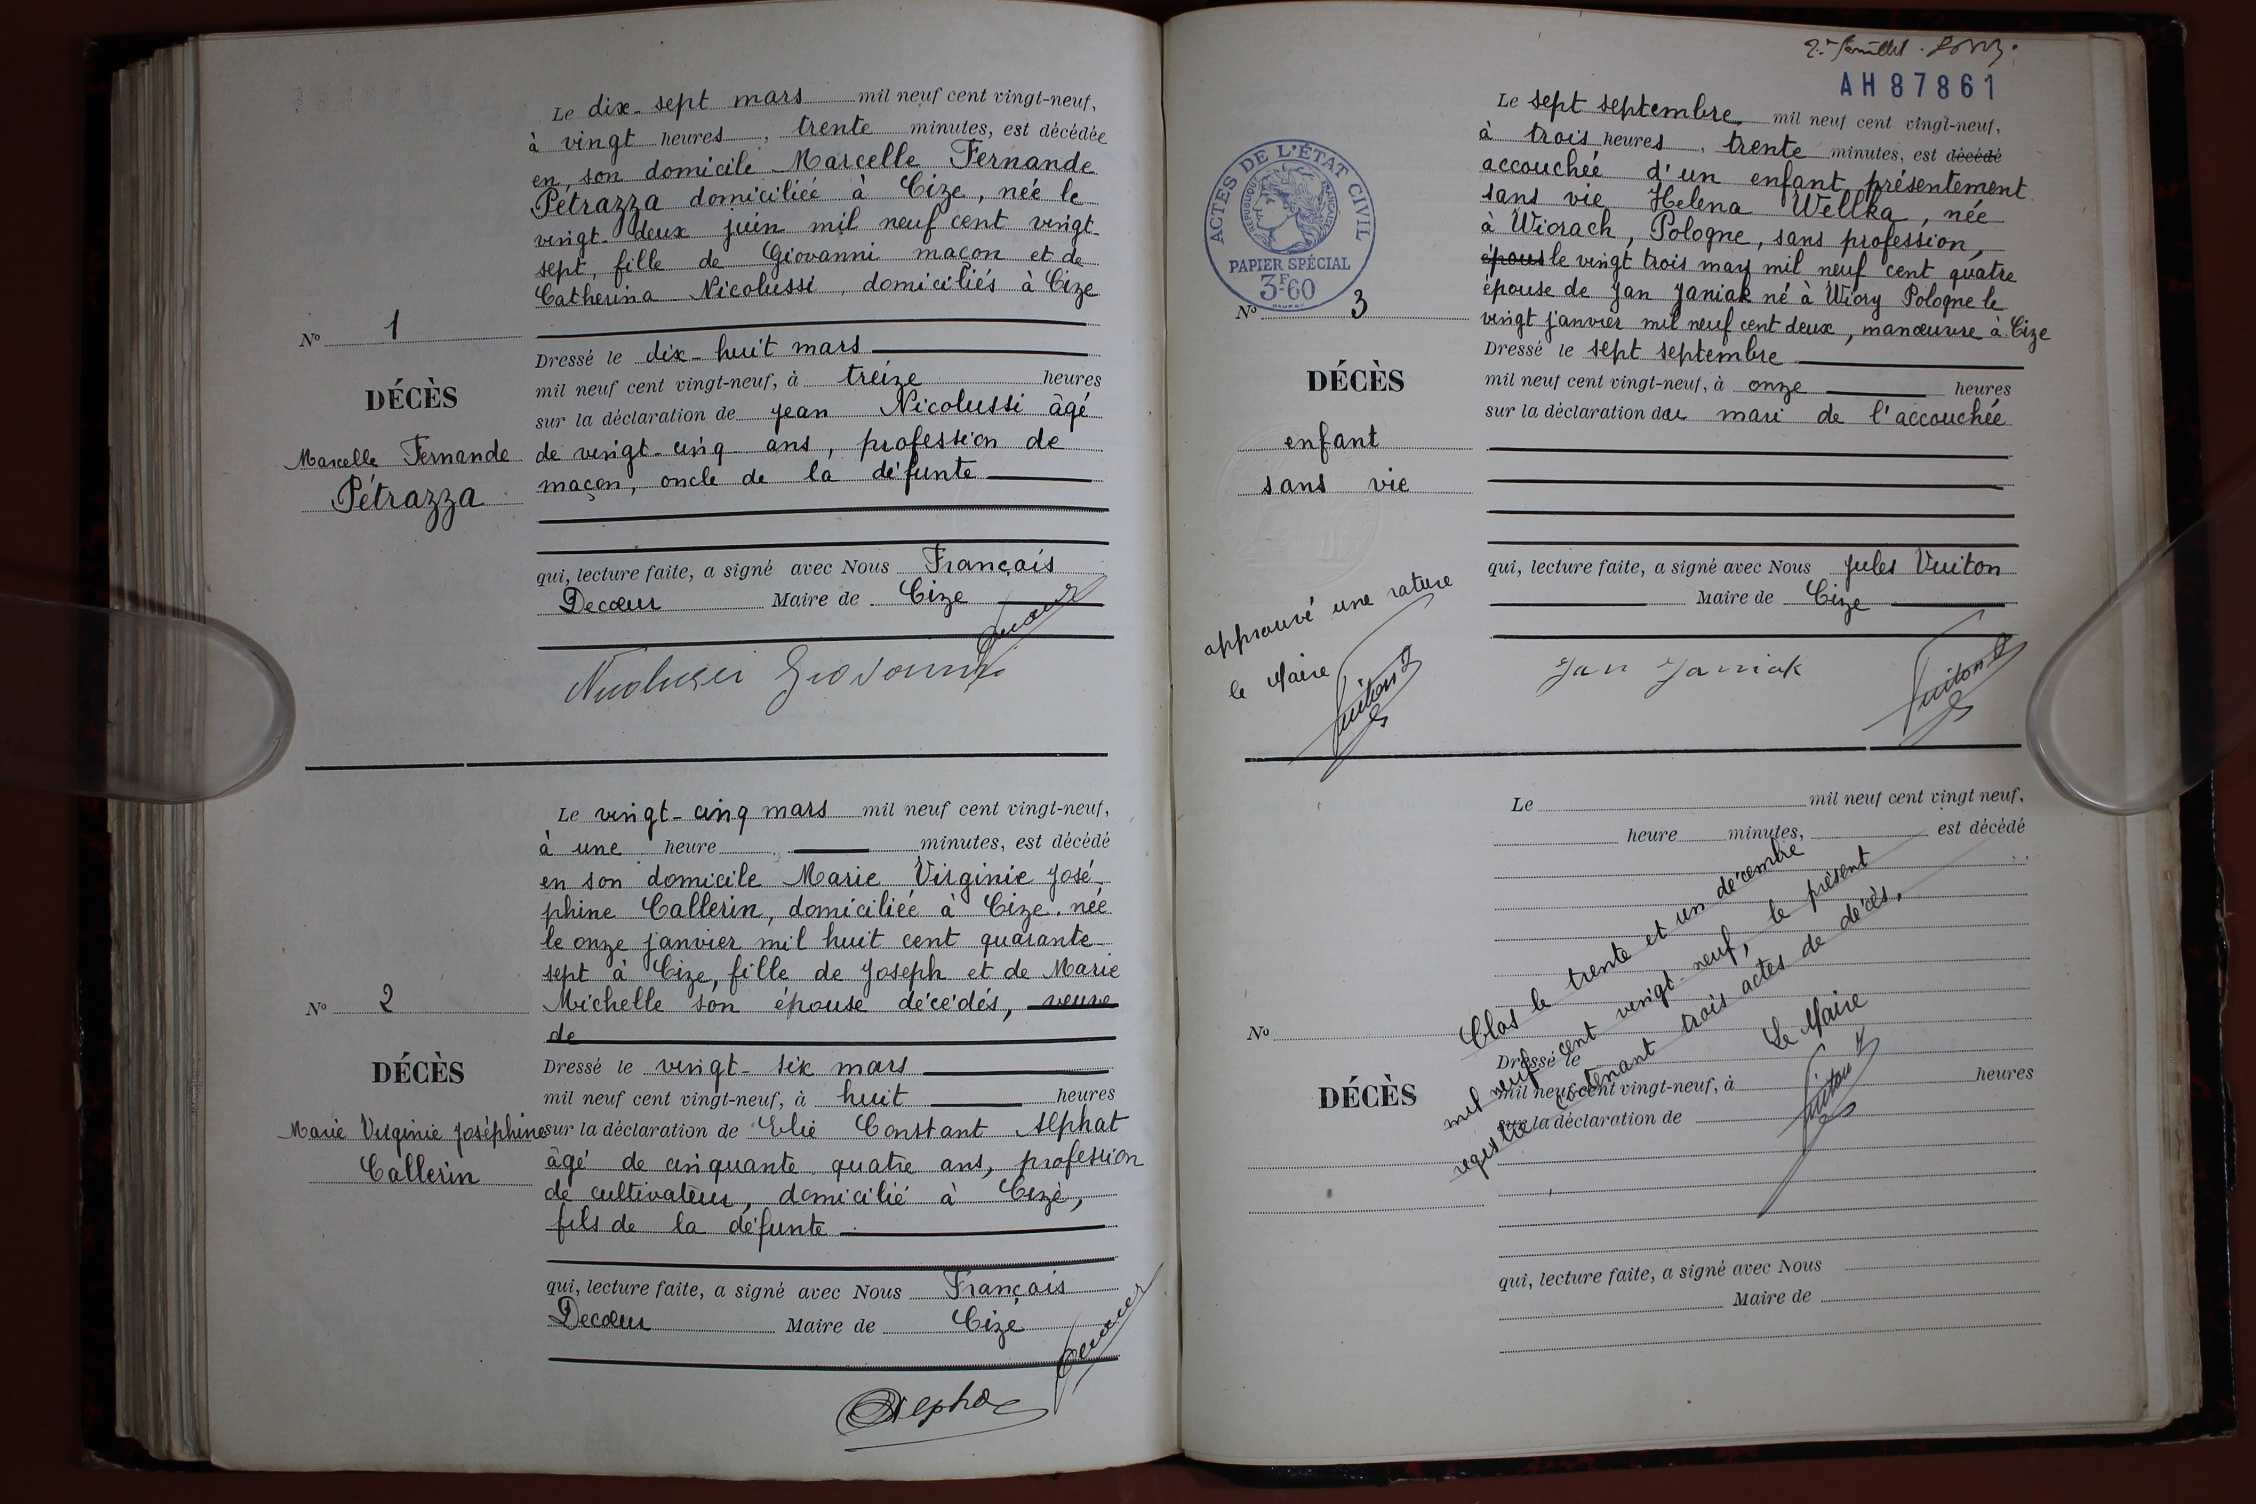 Le dix-sept mars mil neuf cent vingt-neuf,
à vingt heures, trente minutes, est décédée
en son domicile Marcelle Fernande
Pétrazza domiciliée à Cize, née le
vingt-deux juin mil neuf cent vingt-
sept, fille de Giovanni maçon et de
Catherina Nicolussi, domiciliés à Cize
No 1
Dressé le dix-huit mars
mil neuf cent vingt-neuf, à treize heures
DÉCÈS
sur la déclaration de Jean Nicolussi âgé
Marcelle Fernande
de vingt-cinq ans, profession de
Pétrazza
maçon, oncle de la défunte
qui, lecture faite, a signé avec Nous Français
Decœur Maire de Cize
Nicolussi Giovanni
Le vingt-cinq mars mil neuf cent vingt-neuf,
à une heure minutes, est décédé
en son domicile Marie Virginie José-
phine Callerin, domiciliée à Cize, née
le onze janvier mil huit cent quarante-
sept à Cize, fille de Joseph et de Marie
Michelle son épouse décédés, veuve
de
No 2
Dressé le vingt-six mars
DÉCÈS
mil neuf cent vingt-neuf, à huit heures
Marie Virginie Joséphine
Callerin
sur la déclaration de Elie Constant Alphat
âgé de cinquante quatre ans, profession
de cultivateur, domicilié à Cize,
fils de la défunte
qui, lecture faite, a signé avec Nous Français
Decœur Maire de Cize
AH87861
ACTES DE L'ÉTAT CIVIL
RÉPUBLIQUE FRANÇAISE
PAPIER SPÉCIAL
3F60
Le sept septembre mil neuf cent vingt-neuf,
à trois heures, trente minutes, est décédé
accouchée d'un enfant présentement
sans vie Helena Wellka, née
à Wiorach, Pologne, sans profession,
épous le vingt trois may mil neuf cent quatre
épouse de Jan Janiak né à Wiory Pologne le
vingt janvier mil neuf cent deux, manœuvre à Cize
No 3
Dressé le sept septembre
DÉCÈS
mil neuf cent vingt-neuf, à onze heures
sur la déclaration du mari de l'accouchée
enfant
sans vie
qui, lecture faite, a signé avec Nous Jules Vuiton
Maire de Cize
approuvé une rature
le Maire
Vuiton J
Jan Janiak
Vuiton J
Le mil neuf cent vingt neuf,
heure minutes, est décédé
No
DÉCÈS
Dressé le
mil neuf cent vingt-neuf, à heures
sur la déclaration de
Clos le trente et un décembre
mil neuf cent vingt-neuf, le présent
registre contenant trois actes de décès.
Le Maire
Vuiton J
qui, lecture faite, a signé avec Nous
Maire de